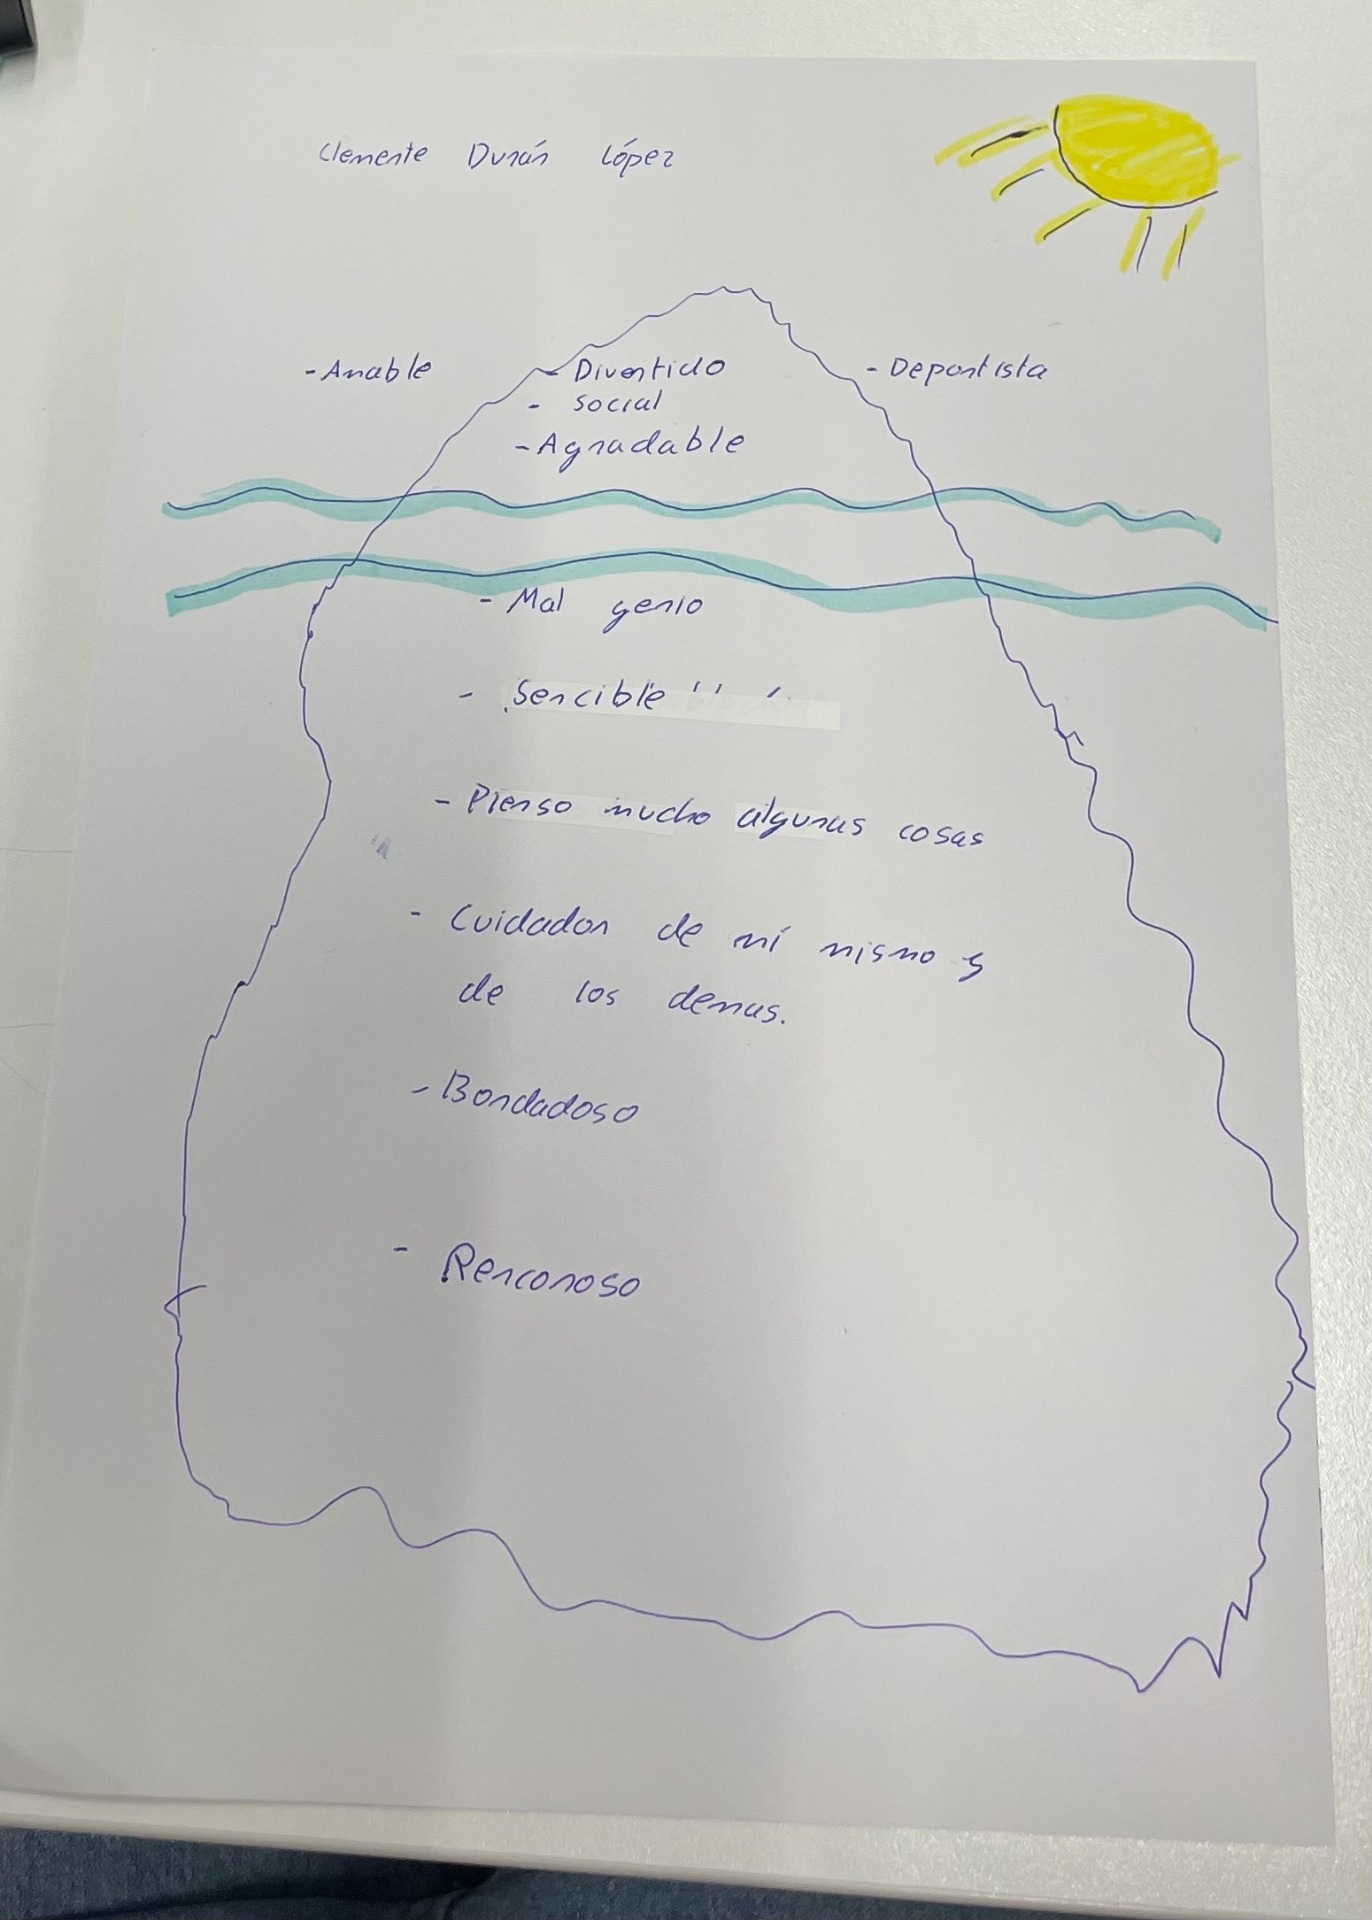 Clemente Durán López
- Amable - Divertido - Deportista
- social
- Agradable
- Mal genio
- Sencible
- Pienso mucho algunas cosas
- Cuidador de mí mismo y
de los demas.
- Bondadoso
- Renconoso